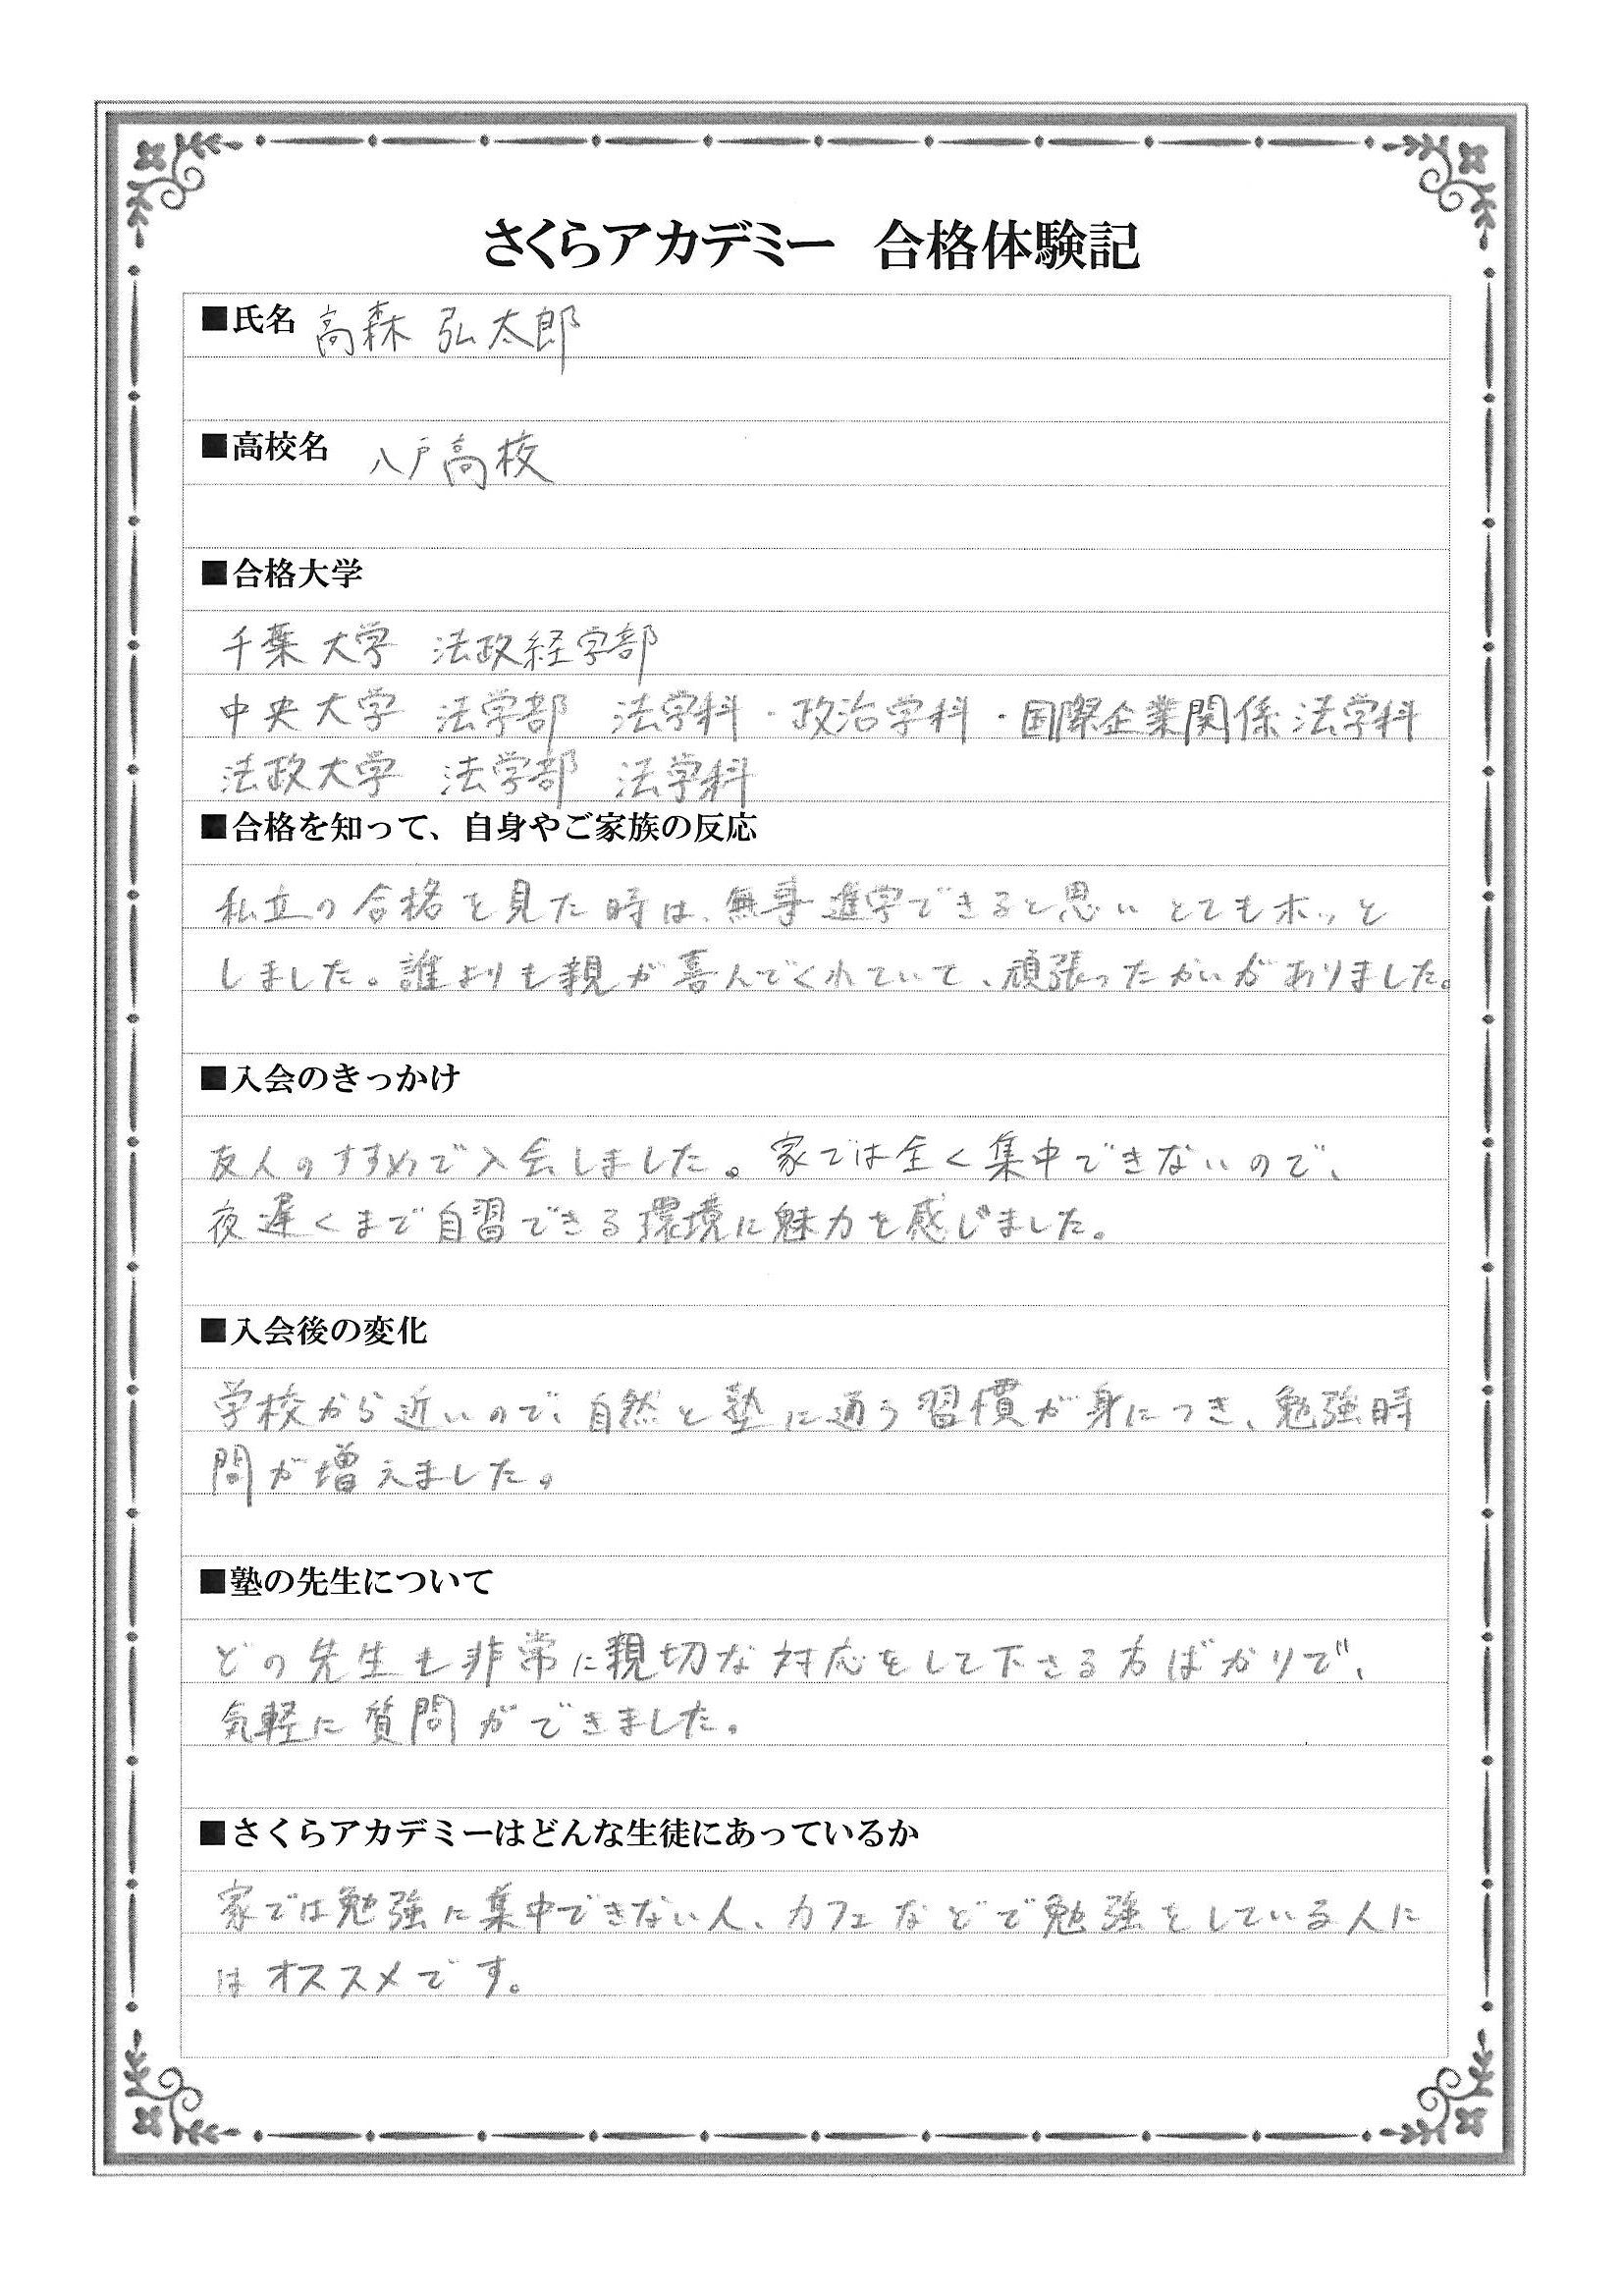 さくらアカデミー 合格体験記
■氏名 高森 弘太郎
■高校名 八戸高校
■合格大学
千葉大学 法政経学部
中央大学 法学部 法学科・政治学科・国際企業関係法学科
法政大学 法学部 法学科
■合格を知って、自身やご家族の反応
私立の合格を見た時は、無事進学できると思いとてもホッと
しました。誰よりも親が喜んでくれていて、頑張ったかいがありました。
■入会のきっかけ
友人のすすめで入会しました。家では全く集中できないので、
夜遅くまで自習できる環境に魅力を感じました。
■入会後の変化
学校から近いので、自然と塾に通う習慣が身につき、勉強時
間が増えました。
■塾の先生について
どの先生も非常に親切な対応をして下さる方ばかりで、
気軽に質問ができました。
■さくらアカデミーはどんな生徒にあっているか
家では勉強に集中できない人、カフェなどで勉強をしている人に
はオススメです。